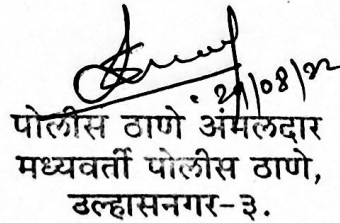 पोलीस ठाणे अंमलदार
मध्यवर्ती पोलीस ठाणे,
उल्हासनगर-३.